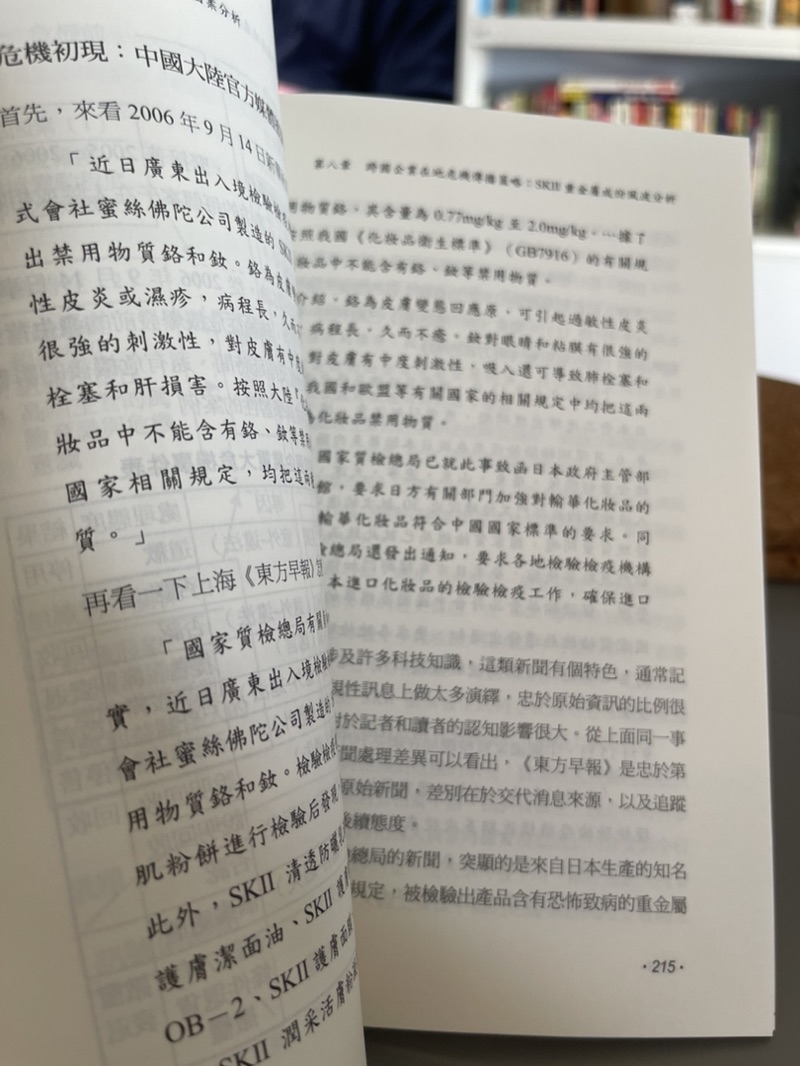 案分析
危機初現：中國大陸官方媒體
首先，來看 2006 年 9 月 14 日新
「近日廣東出入境檢驗檢
式會社蜜絲佛陀公司製造的 SK
出禁用物質鉻和釹。鉻為皮膚
性皮炎或濕疹，病程長，久而
很強的刺激性，對皮膚有中度
栓塞和肝損害。按照大陸『化
妝品中不能含有鉻、釹等禁
國家相關規定，均把這兩
質。」
再看一下上海《東方早報》
「國家質檢總局有關
實，近日廣東出入境檢驗
會社蜜絲佛陀公司製造的
用物質鉻和釹。檢驗檢
肌粉餅進行檢驗后發現
此外，SKII 清透防曬
護膚潔面油、SKII 護
OB－2、SKII 護膚面
SKII 潤采活膚粉
第八章 跨國企業在地危機傳播策略：SKII 重金屬成份風波分析
用物質鉻，其含量為 0.77mg/kg 至 2.0mg/kg。…據了
按照我國《化妝品衛生標準》（GB7916）的有關規
妝品中不能含有鉻、釹等禁用物質。
介紹，鉻為皮膚變態回應原，可引起過敏性皮炎
病程長，久而不癒。釹對眼睛和粘膜有很強的
對皮膚有中度刺激性，吸入還可導致肺栓塞和
我國和歐盟等有關國家的相關規定中均把這兩
為化妝品禁用物質。
國家質檢總局已就此事致函日本政府主管部
館，要求日方有關部門加強對輸華化妝品的
輸華化妝品符合中國國家標準的要求。同
檢總局還發出通知，要求各地檢驗檢疫機構
本進口化妝品的檢驗檢疫工作，確保進口
涉及許多科技知識，這類新聞有個特色，通常記
現性訊息上做太多演繹，忠於原始資訊的比例很
對於記者和讀者的認知影響很大。從上面同一事
聞處理差異可以看出，《東方早報》是忠於第
原始新聞，差別在於交代消息來源，以及追蹤
後續態度。
總局的新聞，突顯的是來自日本生產的知名
規定，被檢驗出產品含有恐怖致病的重金屬
·215·